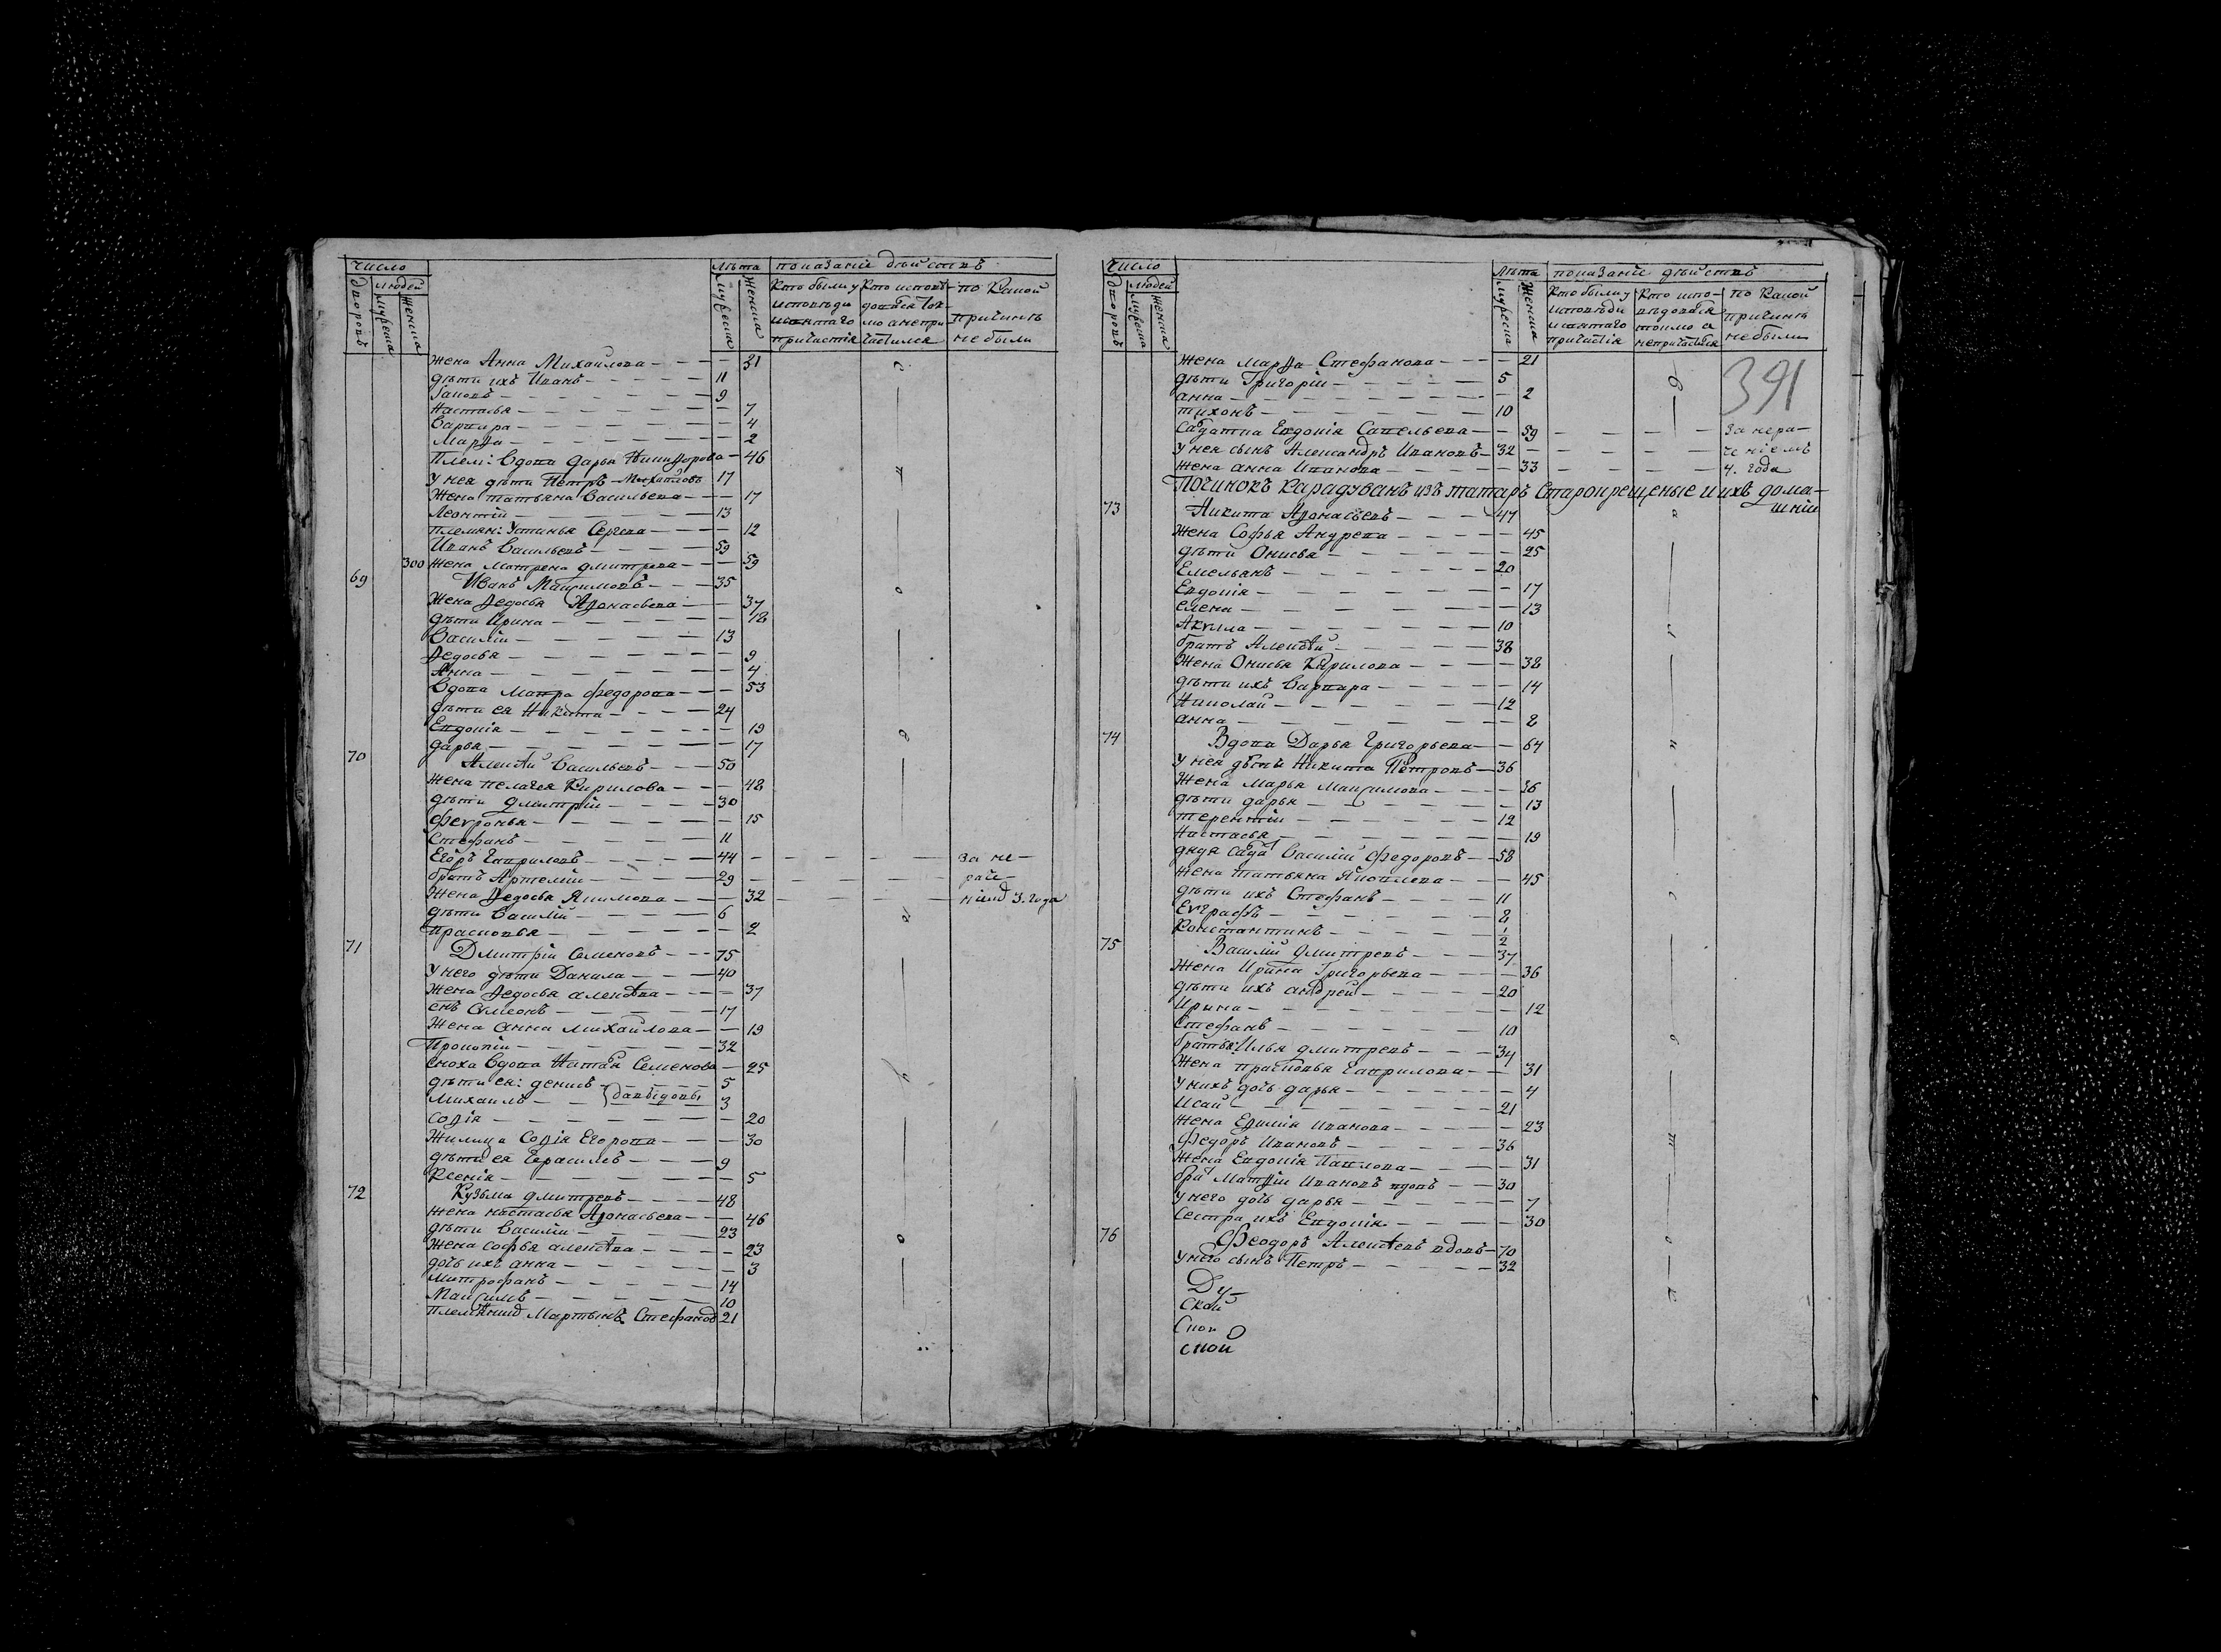 число
лѣта показанiе дѣйствъ
дворовъ
людей
мужеска
женска
мужеска
женска
Кто были у исповѣди и святаго причастiя
Кто исповѣдовался токмо а непричастился
по какой причинѣ небыли
жена Анна Михайлова — 31
дѣти ихъ Иванъ — 11
Iаковъ — 9
Настасья — 7
Варвара — 4
Марѳа — 2
Плем: вдова дарья Никифорова — 46
У нея дѣти Петръ Михайловъ 17
жена татьяна Васильева — 17
Леонтiй — 13
племян: Устинья Сергева — 12
Иванъ Васильевъ — 59
300 жена матрена дмитрева — 59
69 Иванъ Максимовъ — 35
жена Ѳедосья Аѳонасьева — 37
дѣти Ирина — 18
Василiй — 13
Ѳедосья — 9
Анна — 4
вдова Мавра Федорова — 53
дѣти ея Никита — 24
Евдокiя — 19
дарья — 17
70 Алексѣй Васильевъ — 50
жена пелагея Кирилова — 48
дѣти дмитрiй — 30
Февронья — 15
Стефанъ — 11
Егоръ Гавриловъ — 44 — за не-
братъ Артемiй — 29 — раче-
жена Ѳедосья Якимова — 32 — нiем 3. года
дѣти Василiй — 6
Прасковья — 2
71 Дмитрiй Семеновъ — 75
У него дѣти Данила — 40
жена Ѳедосья алексѣва — 37
снъ Симеонъ — 17
жена анна михайлова — 19
Прокопiй — 32
сноха вдова Наталья Семенова — 25
дѣти ея: денисъ — 5
Михаилъ — давыдовы 3
соѳiя — 20
Жилица Соѳiя Егорова — 30
дѣти ея Герасимъ — 9
Ксенiя — 5
72 Кузьма дмитревъ — 48
жена настасья Аѳонасьева — 46
дѣти Василiй — 23
жена софья алексѣва — 23
дочь ихъ анна — 3
Митрофанъ — 14
Максимъ — 10
племянник Мартынъ Стефанов 21
число
лѣта показанiе дѣйствъ
дворовъ
людей
мужеска
женска
мужеска
женска
Кто были у исповѣди и святаго причастiя
Кто исповѣдовался токмо а непричастился
по какой причинѣ небыли
391
жена марѳа Стефанова — 21
дѣти Григорiй — 5
анна — 2
тихонъ — 10
Салдатка Евдокiя Савельева — 59 — за нера-
У нея сынъ Александръ Ивановъ — 32 — ченiемъ
жена анна Иванова — 33 — 4. года
Починокъ Карадуванъ изъ татаръ Старокрещеные и ихъ дома-
шнiи
73 Никита Аѳонасьевъ — 47
жена Софья Андрева — 45
дѣти Онисья — 25
Емельянъ — 20
Евдокiя — 17
елена — 13
Акила — 10
братъ Алексѣй — 38
жена Онисья Кирилова — 38
дѣти ихъ Варвара — 14
Николай — 12
анна — 8
74 Вдова Дарья Григорьева — 64
У нея дѣти Никита Петровъ — 36
жена марья максимова — 36
дѣти дарья — 13
терентiй — 12
Настасья — 19
дядя Василiй Федоровъ — 58
жена татьяна Яковлева — 45
дѣти ихъ Стефанъ — 11
Евграфъ — 8
Константинъ — 1/2
75 Василiй дмитревъ — 37
жена Ирина Григорьева — 36
дѣти ихъ андрей — 20
Ирина — 12
Стефанъ — 10
братья: Илья дмитревъ — 34
жена прасковья Гаврилова — 31
У нихъ дочь дарья — 4
Исай — 21
жена Ефимiя иванова — 23
Федоръ ивановъ — 36
жена Евдокiя Павлова — 31
бра Матѳiй ивановъ вдовъ — 30
У него дочь дарья — 7
Сестра ихъ Евдокiя — 30
76 Феодоръ Алексѣевъ вдовъ — 70
У него сынъ Петръ — 32
Ду-
ской